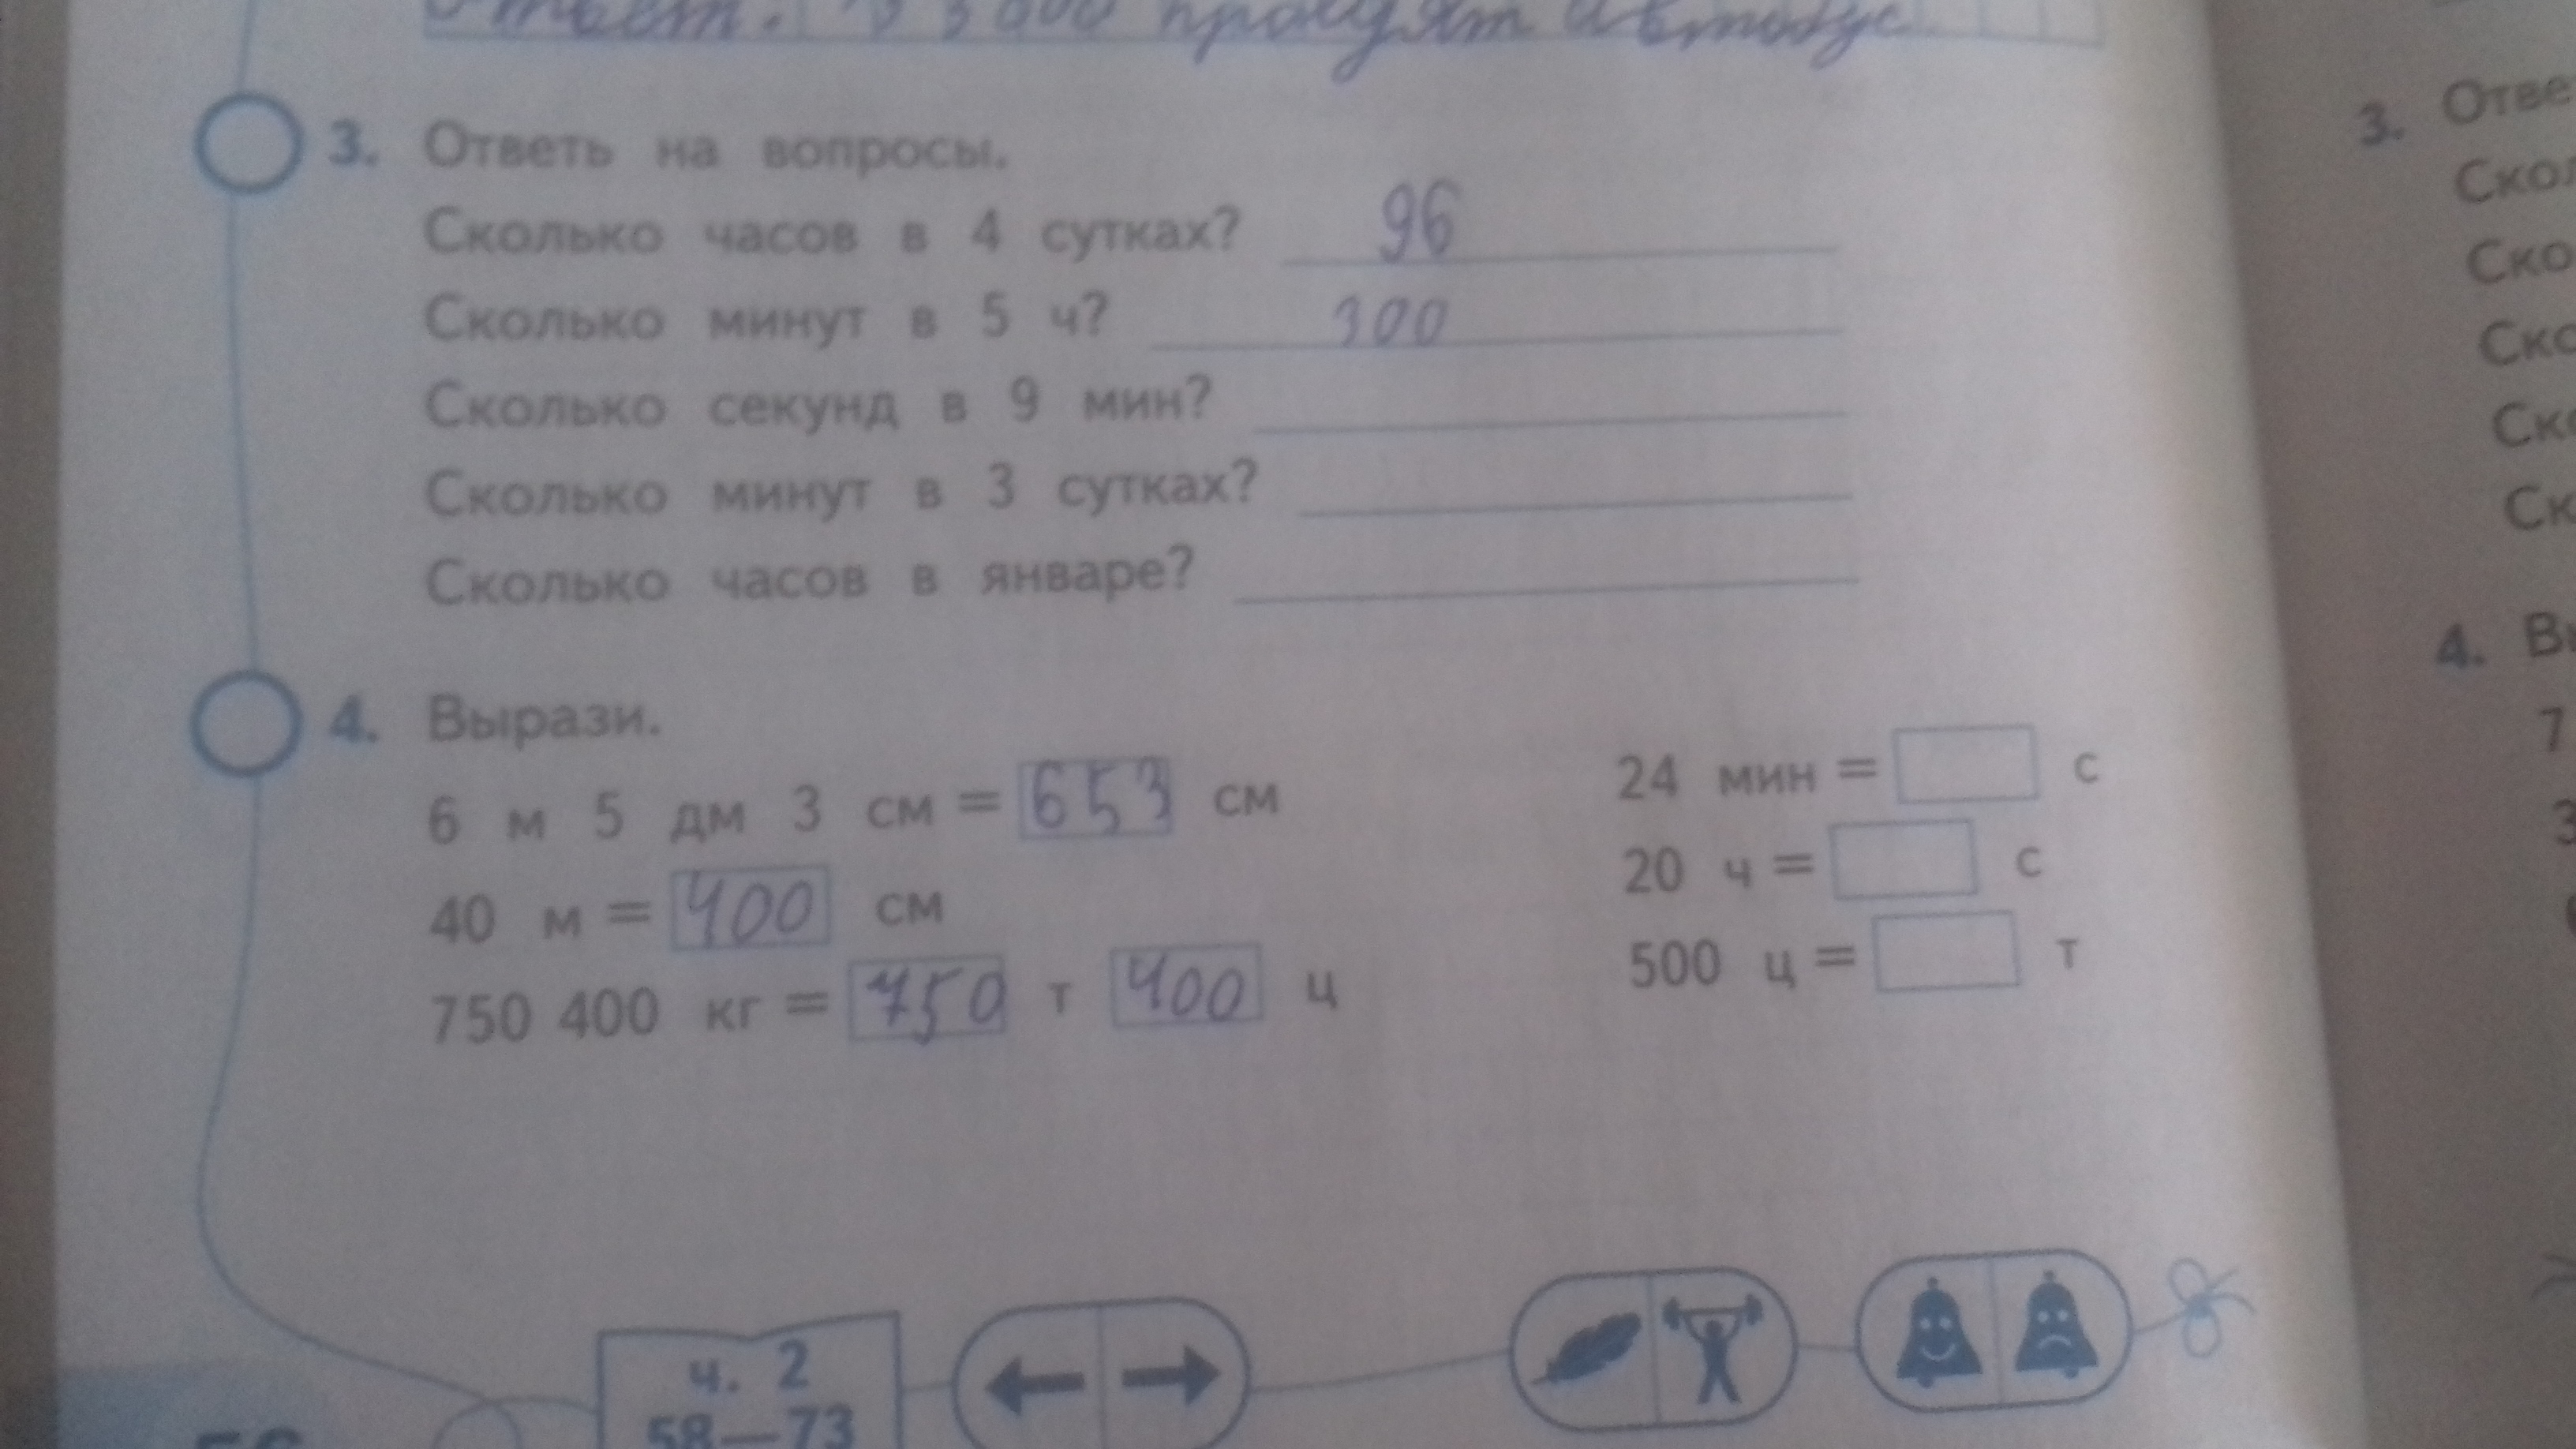 Ответ: 3 000 пройдят автобус
3. Ответь на вопросы.
Сколько часов в 4 сутках? 96
Сколько минут в 5 ч? 300
Сколько секунд в 9 мин?
Сколько минут в 3 сутках?
Сколько часов в январе?
4. Вырази.
6 м 5 дм 3 см = 653 см
40 м = 400 см
750 400 кг = 750 т 400 ц
24 мин = с
20 ч = с
500 ц = т
ч. 2
58—73
3. Отве
Скол
Ско
Ско
Ско
Ск
4. Вы
7
3